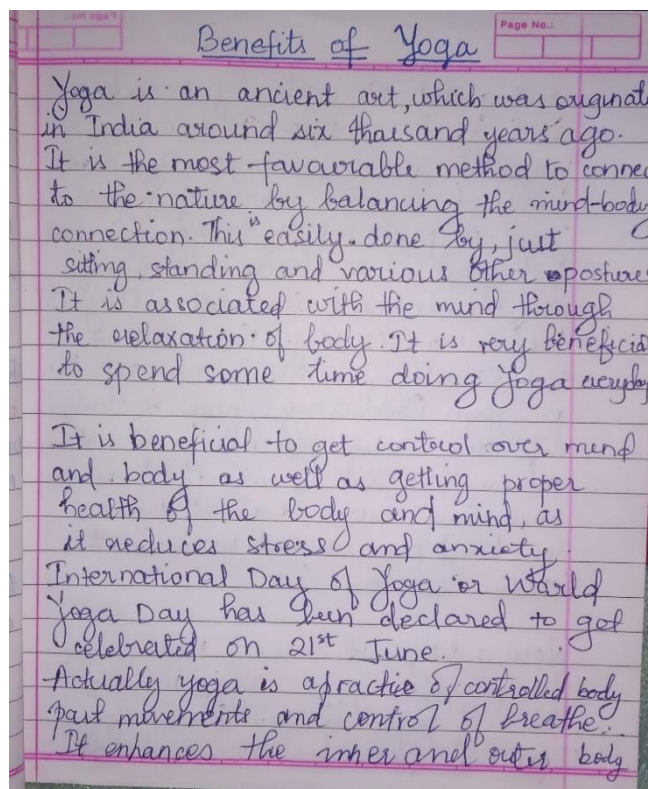 Page No.:
Benefits of Yoga
Yoga is an ancient art, which was originat
in India around six thousand years ago.
It is the most favourable method to connec
to the nature by balancing the mind-body
connection. This is easily done by, just
sitting, standing and various other posture
It is associated with the mind through
the relaxation of body. It is very beneficia
to spend some time doing Yoga everyday
It is beneficial to get control over mind
and body as well as getting proper
health of the body and mind, as
it reduces stress and anxiety.
International Day of Yoga or World
Yoga Day has been declared to get
celebrated on 21st June.
Actually yoga is a practice of controlled body
part movements and control of breathe.
It enhances the inner and outer body